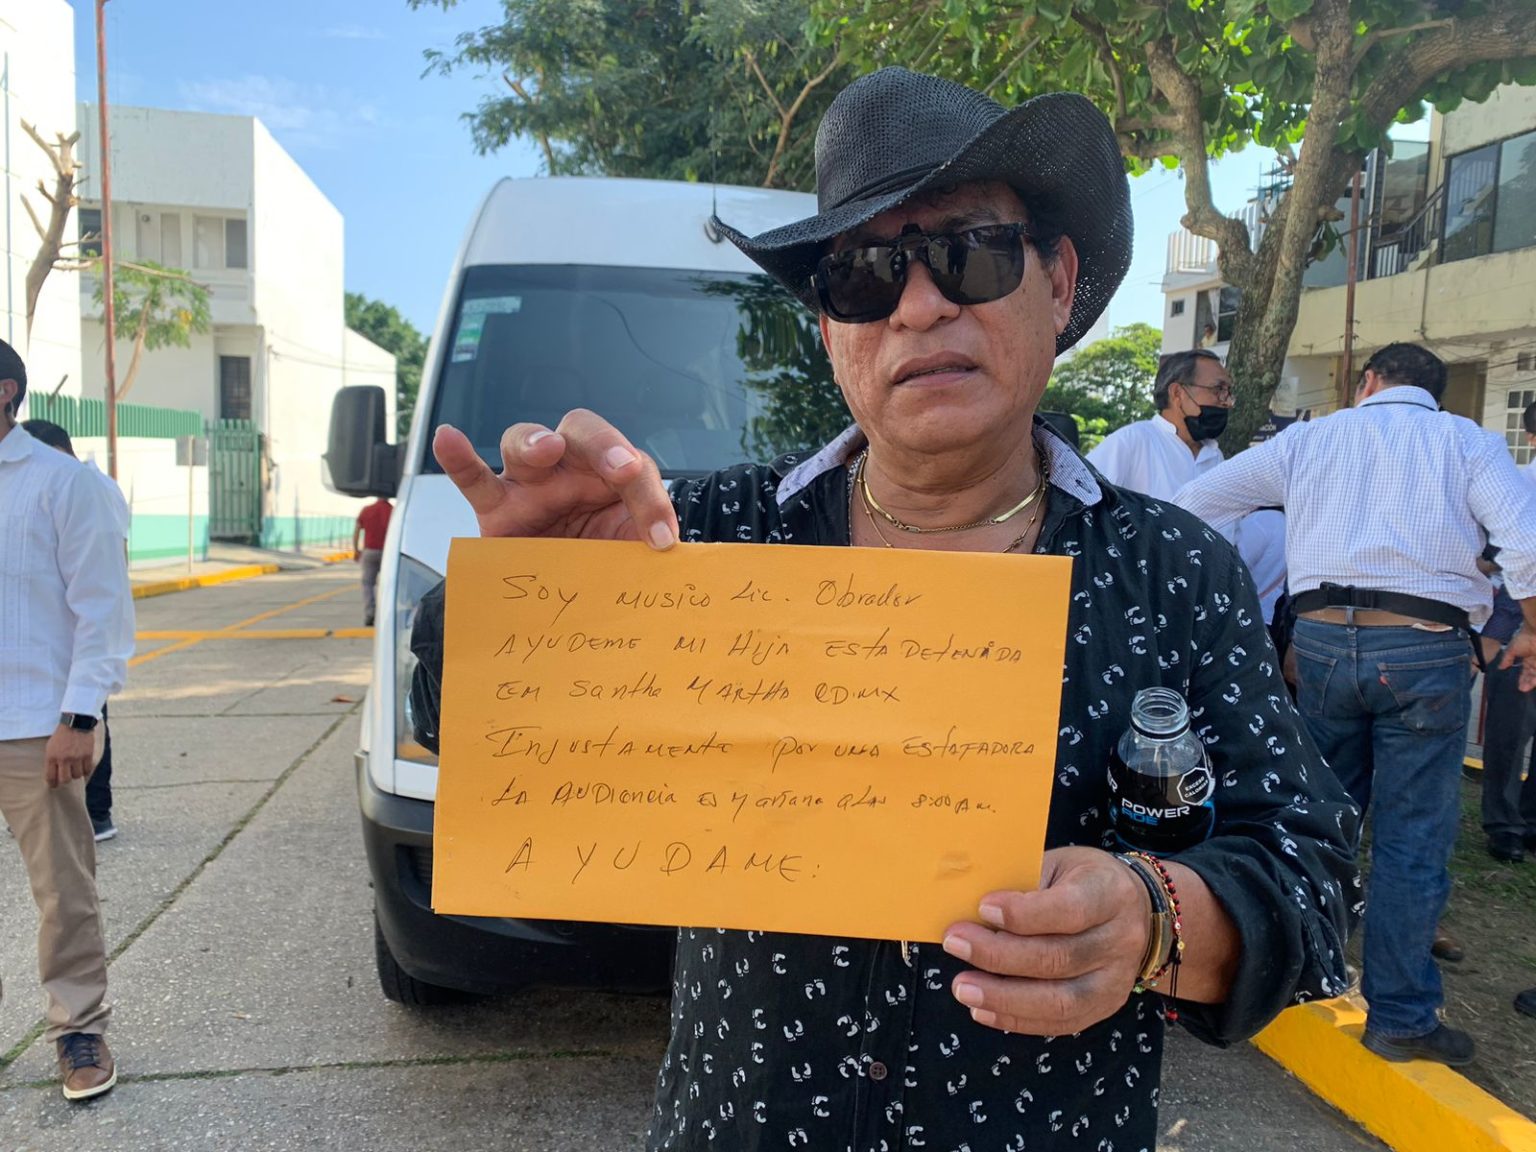 SOY MUSICO Lic. Obrador
AYUDEME MI Hija ESTA DETENIDA
EM Santha MARTHA CDMX
INJUSTAMENTE POR UNA ESTAFADORA
LA AUDIENCIA ES MAÑANA A LAS 8:00 A M.
AYUDAME:
EXCESO
CALORÍAS
POWER
ADE